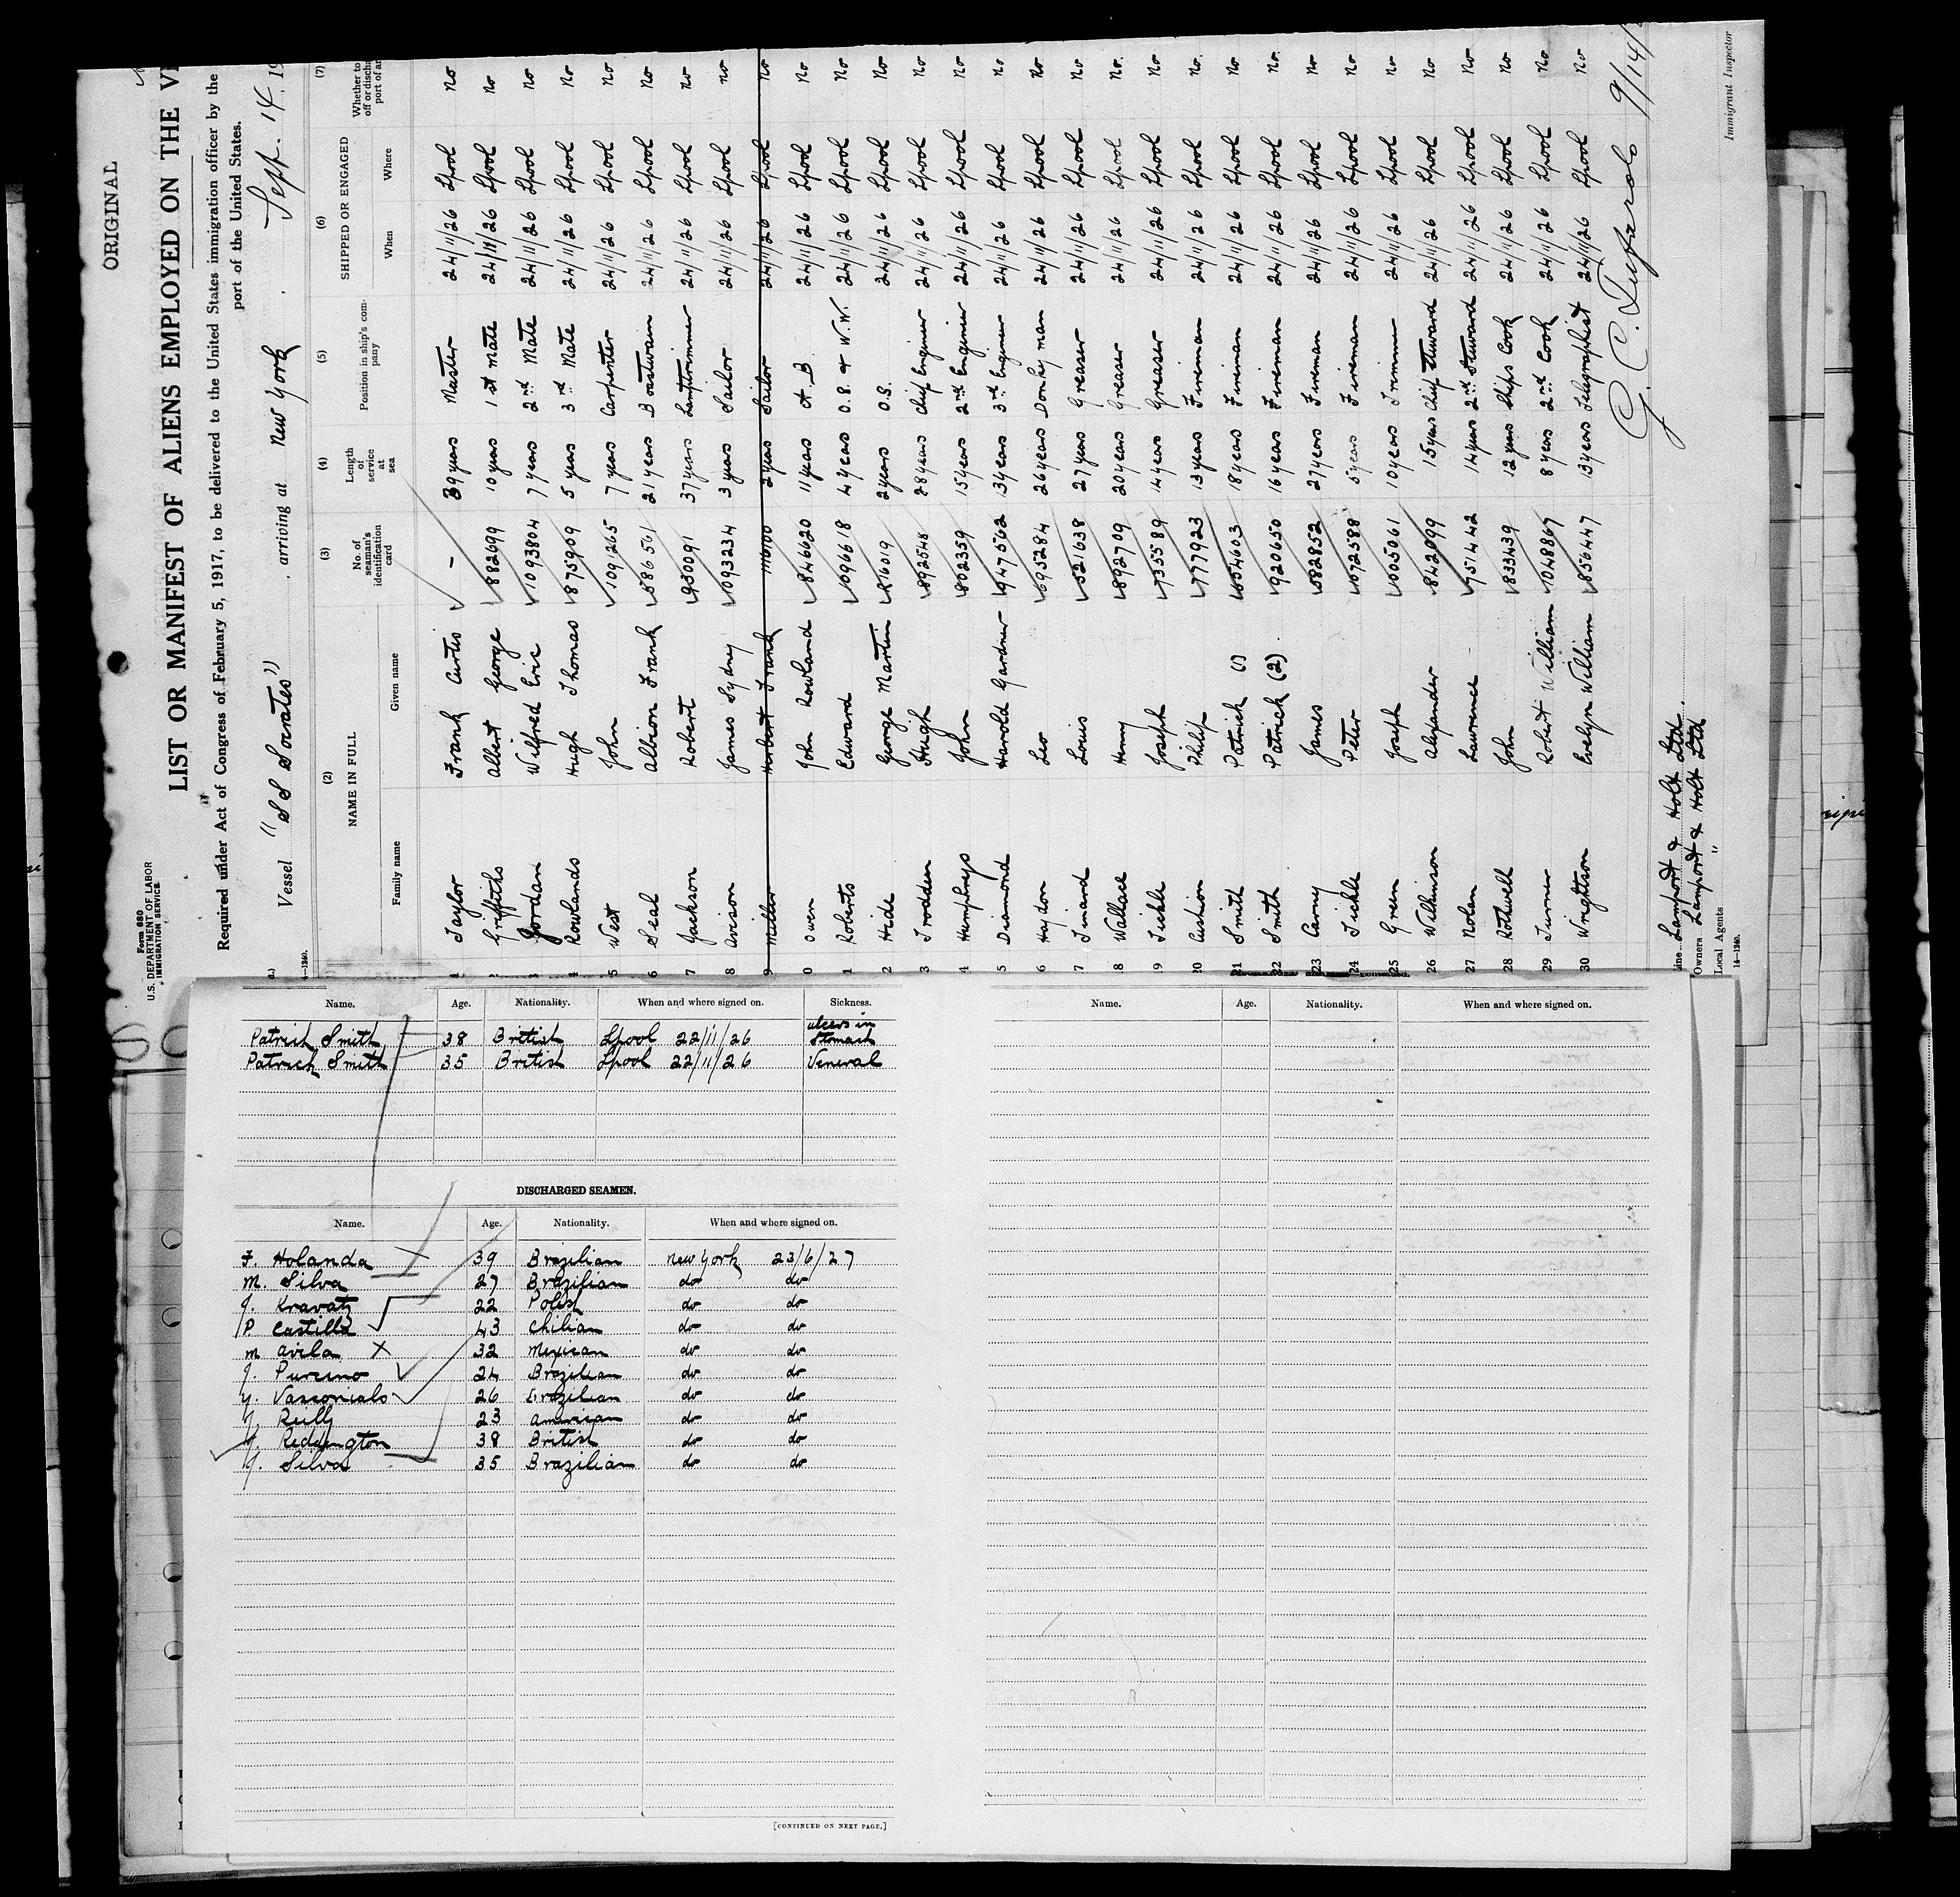 ORIGINAL
Form 680
U.S. DEPARTMENT OF LABOR
IMMIGRATION SERVICE
LIST OR MANIFEST OF ALIENS EMPLOYED ON THE
Required under Act of Congress of February 5, 1917, to be delivered to the United States immigration officer by the
port of the United States.
Vessel "S S Socrates" arriving at New York Sept. 14. 19
(2) (3) (4) (5) (6) (7)
NAME IN FULL No. of seaman's identification card Length of service at sea Position in ship's company SHIPPED OR ENGAGED Whether to
Family name Given name When Where
1 Taylor Frank Curtis – 39 years Master 24/11/26 Lpool no
2 Griffiths Albert George 882699 10 years 1st Mate 24/11/26 Lpool no
3 Jordan Wilfred Eric 1093804 7 years 2nd Mate 24/11/26 Lpool no
4 Rowlands Hugh Thomas 875909 5 years 3rd Mate 24/11/26 Lpool no
5 West John 1091265 7 years Carpenter 24/11/26 Lpool no
6 Seal Albion Frank 586561 21 years Boatswain 24/11/26 Lpool no
7 Jackson Robert 930091 37 years Lamptrimmer 24/11/26 Lpool no
8 Avison James Sydney 1093234 3 years Sailor 24/11/26 Lpool no
9 Miller Herbert Frank 1110100 2 years Sailor 24/11/26 Lpool no
0 Owen John Rowland 846620 11 years A.B 24/11/26 Lpool no
1 Roberts Edward 1096618 4 years O.S. & W.W. 24/11/26 Lpool no
2 Hide George Martin 2 years O.S. 24/11/26 Lpool no
3 Troden Hugh 892548 28 years Chief Engineer 24/11/26 Lpool no
4 Humphreys John 802359 15 years 2nd Engineer 24/11/26 Lpool no
5 Diamond Harold Gardner 947562 13 years 3rd Engineer 24/11/26 Lpool no
6 Haydon Leo 695284 26 years Donkeyman 24/11/26 Lpool no
7 Tinard Louis 521638 27 years Greaser 24/11/26 Lpool no
8 Wallace Henry 892709 20 years Greaser 24/11/26 Lpool no.
19 Tickle Joseph 735589 14 years Greaser 24/11/26 Lpool no
20 Cushion Philip 777923 13 years Fireman 24/11/26 Lpool no.
21 Smith Patrick (1) 654603 18 years Fireman 24/11/26 Lpool no
22 Smith Patrick (2) 920650 16 years Fireman 24/11/26 Lpool no.
23 Carny James 582852 27 years Fireman 24/11/26 Lpool no
24 Tickle Peter 1072588 5 years Fireman 24/11/26 Lpool no
25 Green Joseph 1005061 10 years Trimmer 24/11/26 Lpool no
26 Wilkinson Alexander 842099 15 years Chief Steward 24/11/26 Lpool no
27 Nolan Lawrence 951442 14 years 2nd Steward 24/11/26 Lpool no
28 Rothwell John 833439 12 years Ships Cook 24/11/26 Lpool no
29 Turner Robert William 1048867 8 years 2nd Cook 24/11/26 Lpool no
30 Wrightson Evelyn William 856447 13 years Telegraphist 24/11/26 Lpool no
9/14/
Line Lamport & Holt Ltd
Owners Lamport & Holt Ltd
Local Agents "
14—1240.
Immigrant Inspector
Name. Age. Nationality. When and where signed on. Sickness.
Patrick Smith 38 British Lpool 22/11/26 ulcers in Stomach
Patrick Smith 35 British Lpool 22/11/26 Veneral
DISCHARGED SEAMEN.
Name. Age. Nationality. When and where signed on.
F. Holanda 39 Brazilian New York 23/6/27
M. Silva 27 Brazilian do do
J. Kravatz 22 Polish do do
P Castilla 43 Chilian do do
M Avila 32 Mexican do do
J. Purcino 24 Brazilian do do
Y. Vasconials 26 Brazilian do do
J. Reilly 23 American do do
J. Reddington 38 British do do
J. Silva 35 Brazilian do do
[CONTINUED ON NEXT PAGE.]
Name. Age. Nationality. When and where signed on.